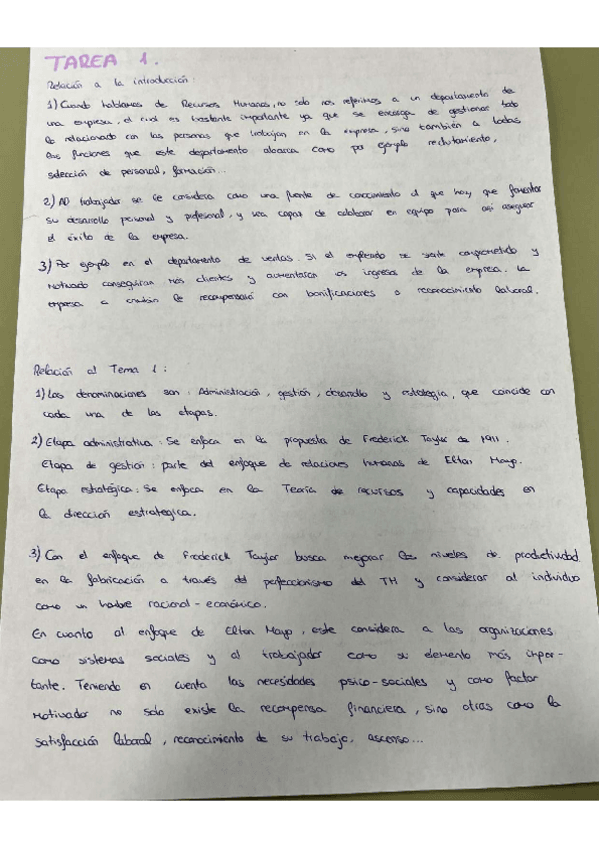 TAREA 1.
Relación a la introducción:
1) Cuando hablamos de Recursos Humanos, no solo nos referimos a un departamento de
una empresa, el cual es bastante importante ya que se encarga de gestionar todo
lo relacionado con las personas que trabajan en la empresa, sino también a todas
las funciones que este departamento abarca como por ejemplo reclutamiento,
selección de personal, formación...
2) Al trabajador se le considera como una fuente de conocimiento al que hay que fomentar
su desarrollo personal y profesional, y sea capaz de colaborar en equipo para así asegurar
el éxito de la empresa.
3) Por ejemplo en el departamento de ventas. Si el empleado se siente comprometido y
motivado conseguiran más clientes y aumentaran los ingresos de la empresa. La
empresa a cambio le recompensará con bonificaciones o reconocimiento laboral.
Relación al Tema 1:
1) Las denominaciones son: Administración, gestión, desarrollo y estrategia, que coincide con
cada una de las etapas.
2) Etapa administrativa: Se enfoca en la propuesta de Frederick Taylor de 1911.
Etapa de gestión: parte del enfoque de relaciones humanas de Elton Mayo.
Etapa estratégica: Se enfoca en la Teoría de recursos y capacidades en
la dirección estrategica.
3) Con el enfoque de Frederick Taylor busca mejorar los niveles de productividad
en la fabricación a través del perfeccionismo del TH y considerar al individuo
como un hombre racional-económico.
En cuanto al enfoque de Elton Mayo, este considera a las organizaciones
como sistemas sociales y al trabajador como su elemento más impor-
tante. Teniendo en cuenta las necesidades psico-sociales y como factor
motivador no solo existe la recompensa financiera, sino otras como la
satisfacción laboral, reconocimiento de su trabajo, ascenso...